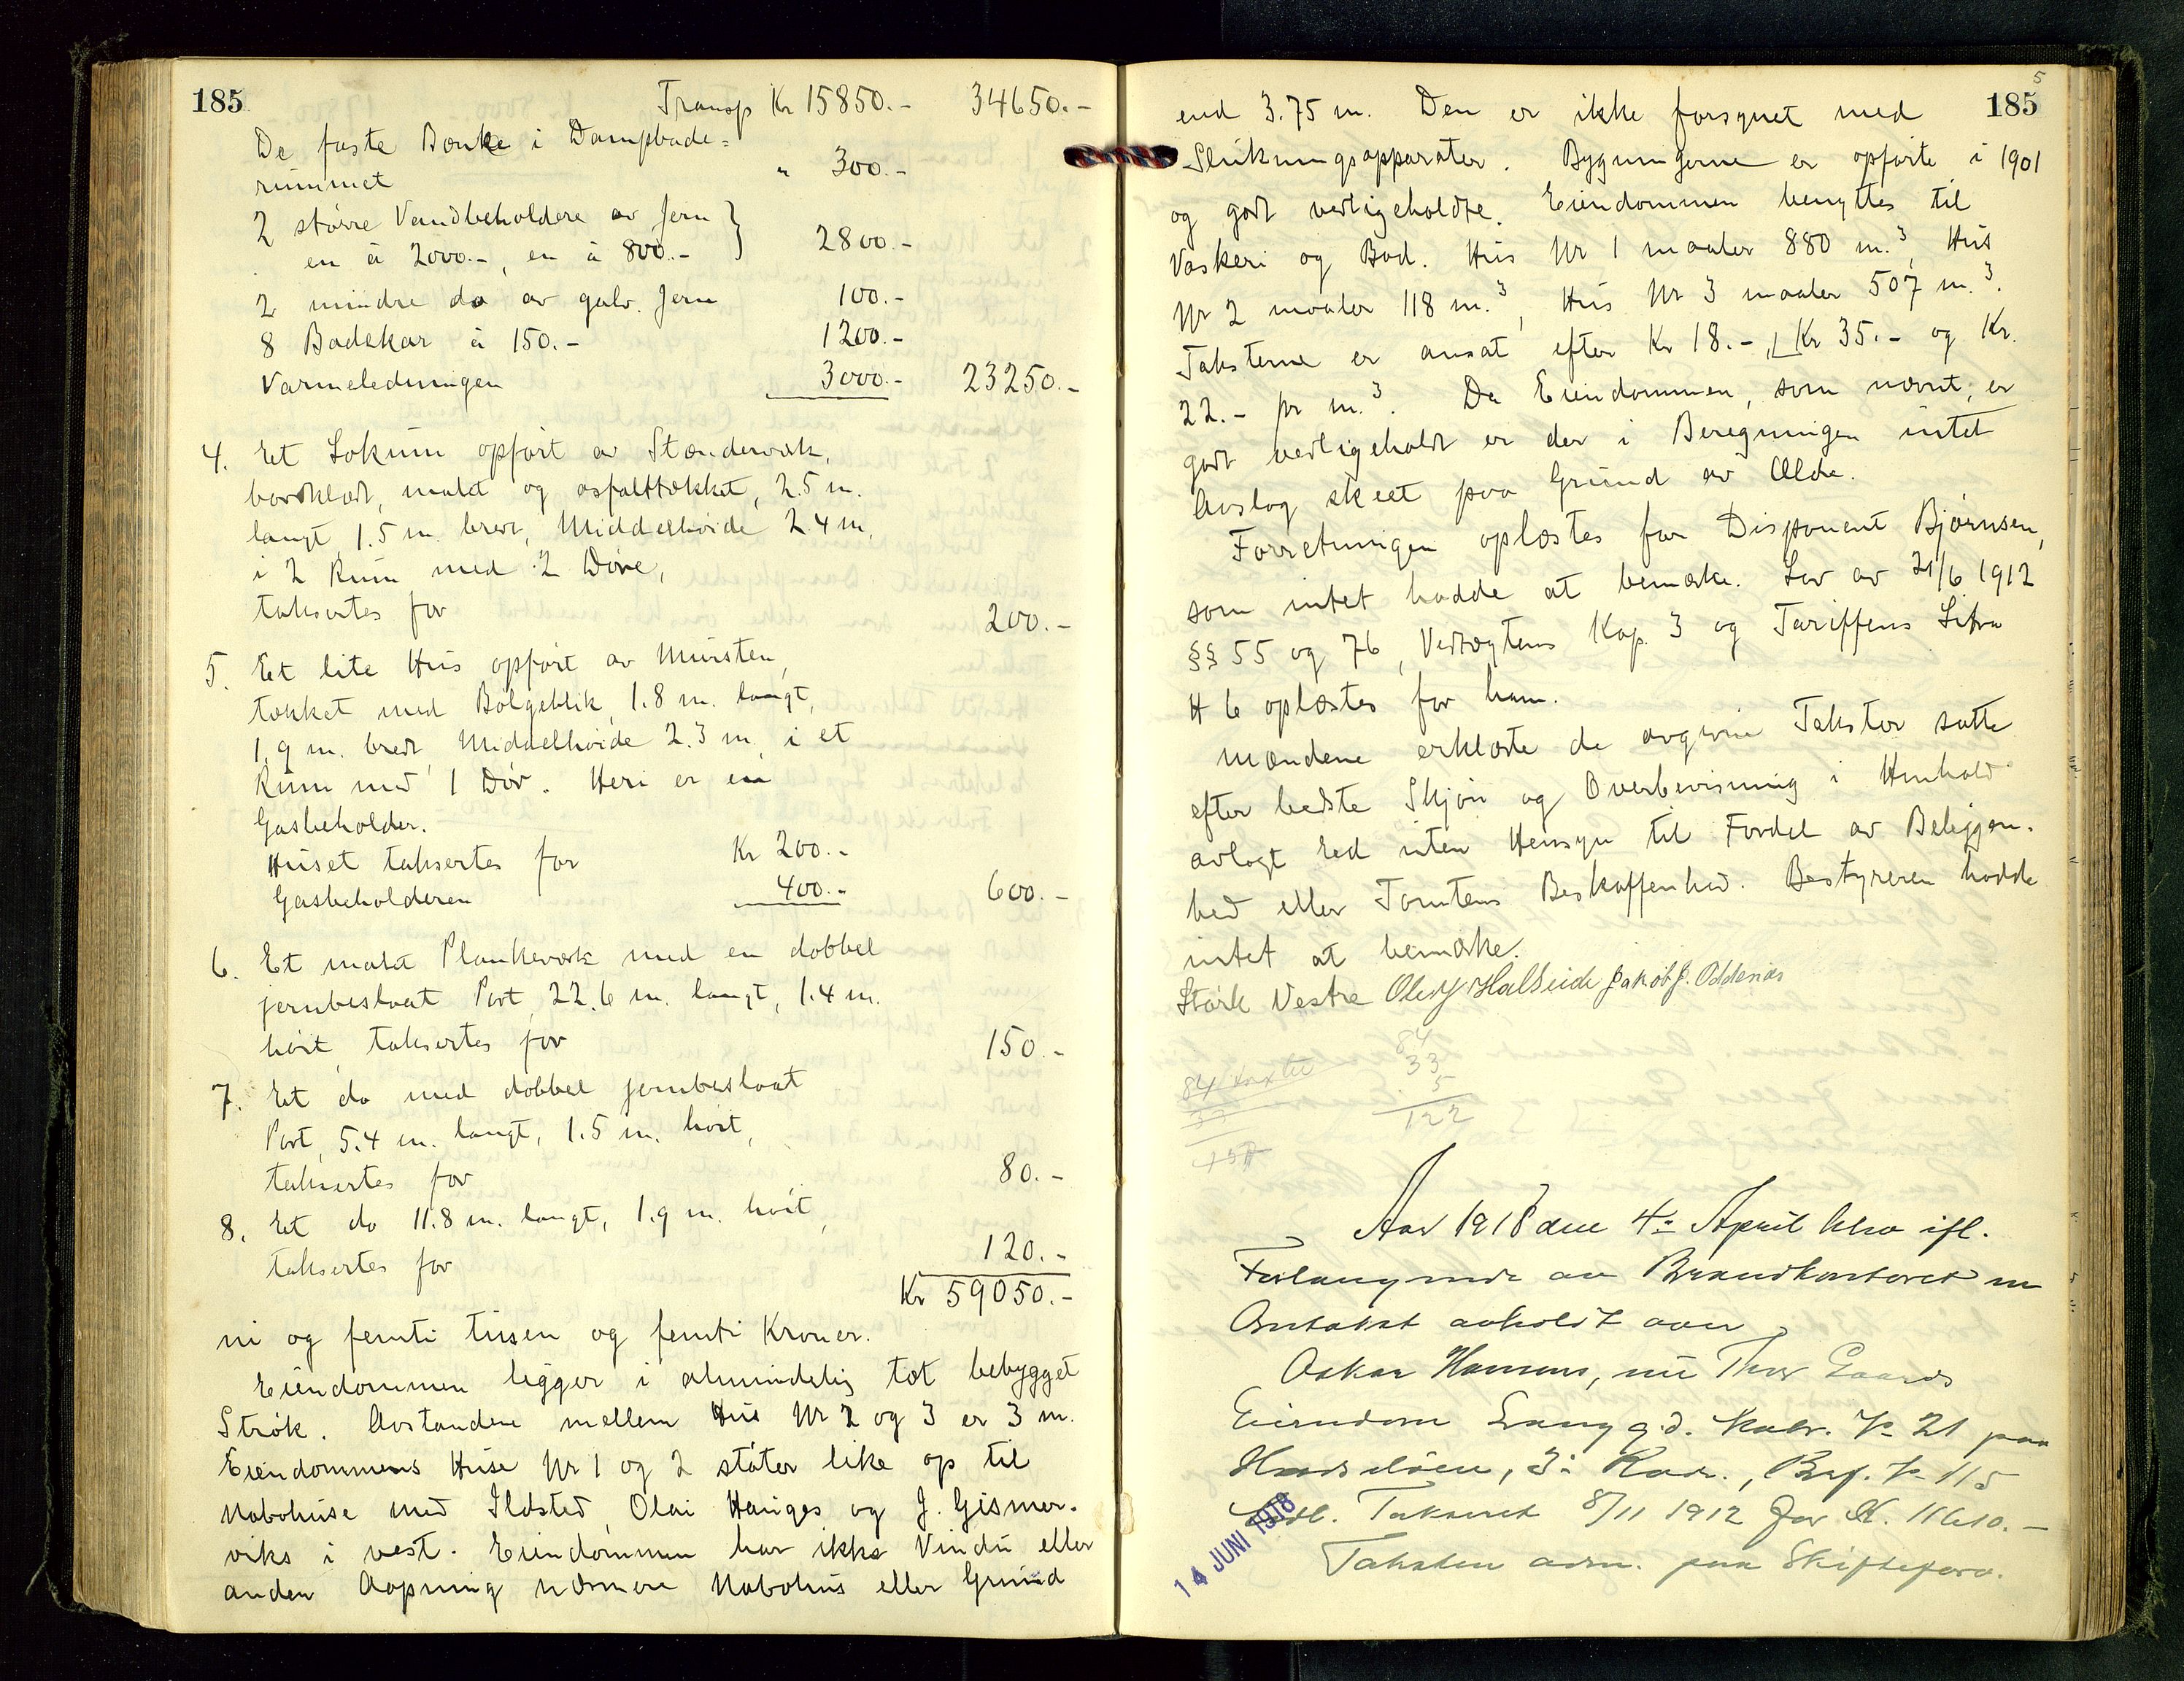 185
Transp Kr 15850.- 34650.-
De faste Bænke i Dampbade-
rummet " 300.-
2 större Vandbeholdere av Jern
en á 2000.-, en á 800.- } 2800.-
2 mindre do av galv. Jern 100.-
8 Badekar á 150.- 1200.-
Varmeledningen 3000.- 23250.-
4. Et Lokum opført av Stænderværk,
bordklædt, malet og asfalttækket, 2.5 m.
langt 1.5 m. bredt, Middelhøide 2.4 m,
i 2 Rum med 2 Døre,
taksertes for 200.-
5. Et lite Hus opført av Mursten,
tækket med Bølgeblik, 1.8 m. langt,
1.9 m. bredt, Middelhøide 2.3 m, i et
Rum med 1 Dør. Heri er en
Gasbeholder.
Huset taksertes for Kr 200.-
Gasbeholderen 400.- 600.-
6. Et malet Plankeværk med en dobbel
jernbeslaat Port, 22.6 m. langt, 1.4 m.
høit, taksertes for 150.-
7. Et do med dobbel jernbeslaat
Port, 5.4 m. langt, 1.5 m. høit,
taksertes for 80.-
8. Et do 11.8 m. langt, 1.9 m. høit,
taksertes for 120.-
Kr 59050.-
ni og femti tusen og femti Kroner.
Eiendommen ligger i almindelig tæt bebygget
Strøk. Avstanden mellem Hus Nr 2 og 3 er 3 m.
Eiendommens Huse Nr 1 og 2 støter like op til
Nabohuse med Ildsted, Olai Hauges og J. Gismer-
viks i vest. Eiendommen har ikke Vindu eller
anden Aapning nærmere Nabohus eller Grund
5
185
end 3.75 m. Den er ikke forsynet med
Slukningsapparater. Bygningerne er opførte i 1901
og godt vedligeholdte. Eiendommen benyttes til
Vaskeri og Bad. Hus Nr 1 maaler 880 m.³, Hus
Nr 2 maaler 118 m.³, Hus Nr 3 maaler 507 m.³.
Taksterne er ansat efter Kr 18.-, Kr 35.- og Kr.
22.- pr m.³. Da Eiendommen, som nævnt, er
godt vedligeholdt er der i Beregningen intet
Avslag skeet paa Grund av Ælde.
Forretningen oplæstes for Disponent Bjørnsen,
som intet hadde at bemærke. Lov av 21/6 1912
§§ 55 og 76, Vedtægtens Kap. 3 og Tariffens Litra
H 6 oplæstes for ham.
Mændene erklærte de avgivne Takster satte
efter bedste Skjøn og Overbevisning i Henhold
avlagt Ed uten Hensyn til Fordel av Beliggen-
hed eller Tomtens Beskaffenhed. Bestyreren hadde
intet at bemærke.
Størk Vestre Olav Halseide Jakob J. Oddenæs
84
33
5
122
84 takster
33
Aar 1918 den 4de April blev ifl.
Forlangende av Brandkontoret en
Omtakst avholdt over
Oskar Hansens, nu Thor Gaards
Eiendom Lang gd. Kalv. № 21 paa
Hasseløen, 3: Rode., Brf. № 115
Takseret 8/11 1912 for K. 11610.-
Taksten adm. paa Skifteforr.
14 JUNI 1918